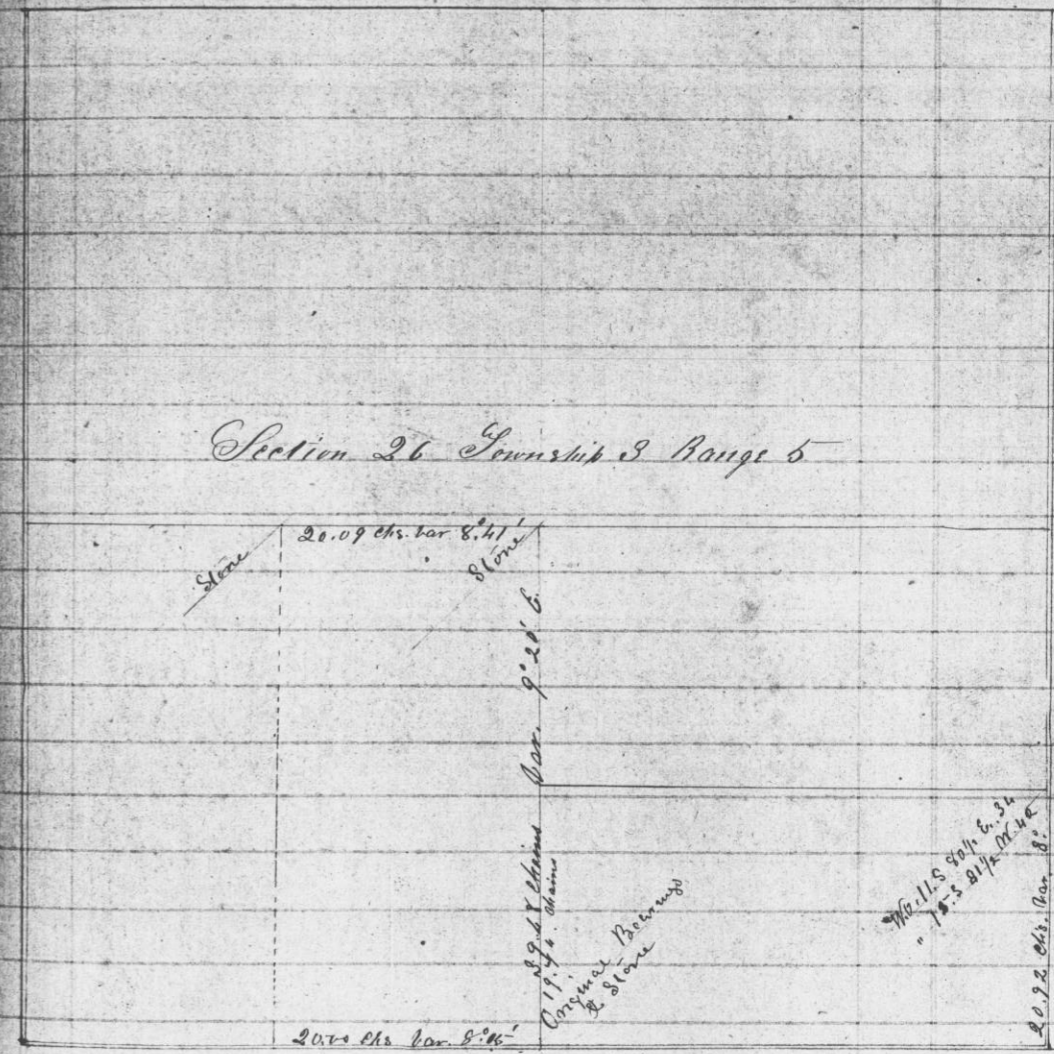 Section 26 Township 3 Range 5
20.09 chs. var 8°.41'
Stone
Stone
Var. 9°20' E.
chains
19.40 chains
Original Bearings
& Stone
W.O. 11. S 80½ E. 34
" 15. S 21½ W. 42
20.92 chs. Var. 8°
20.00 chs Var. 8°.05'